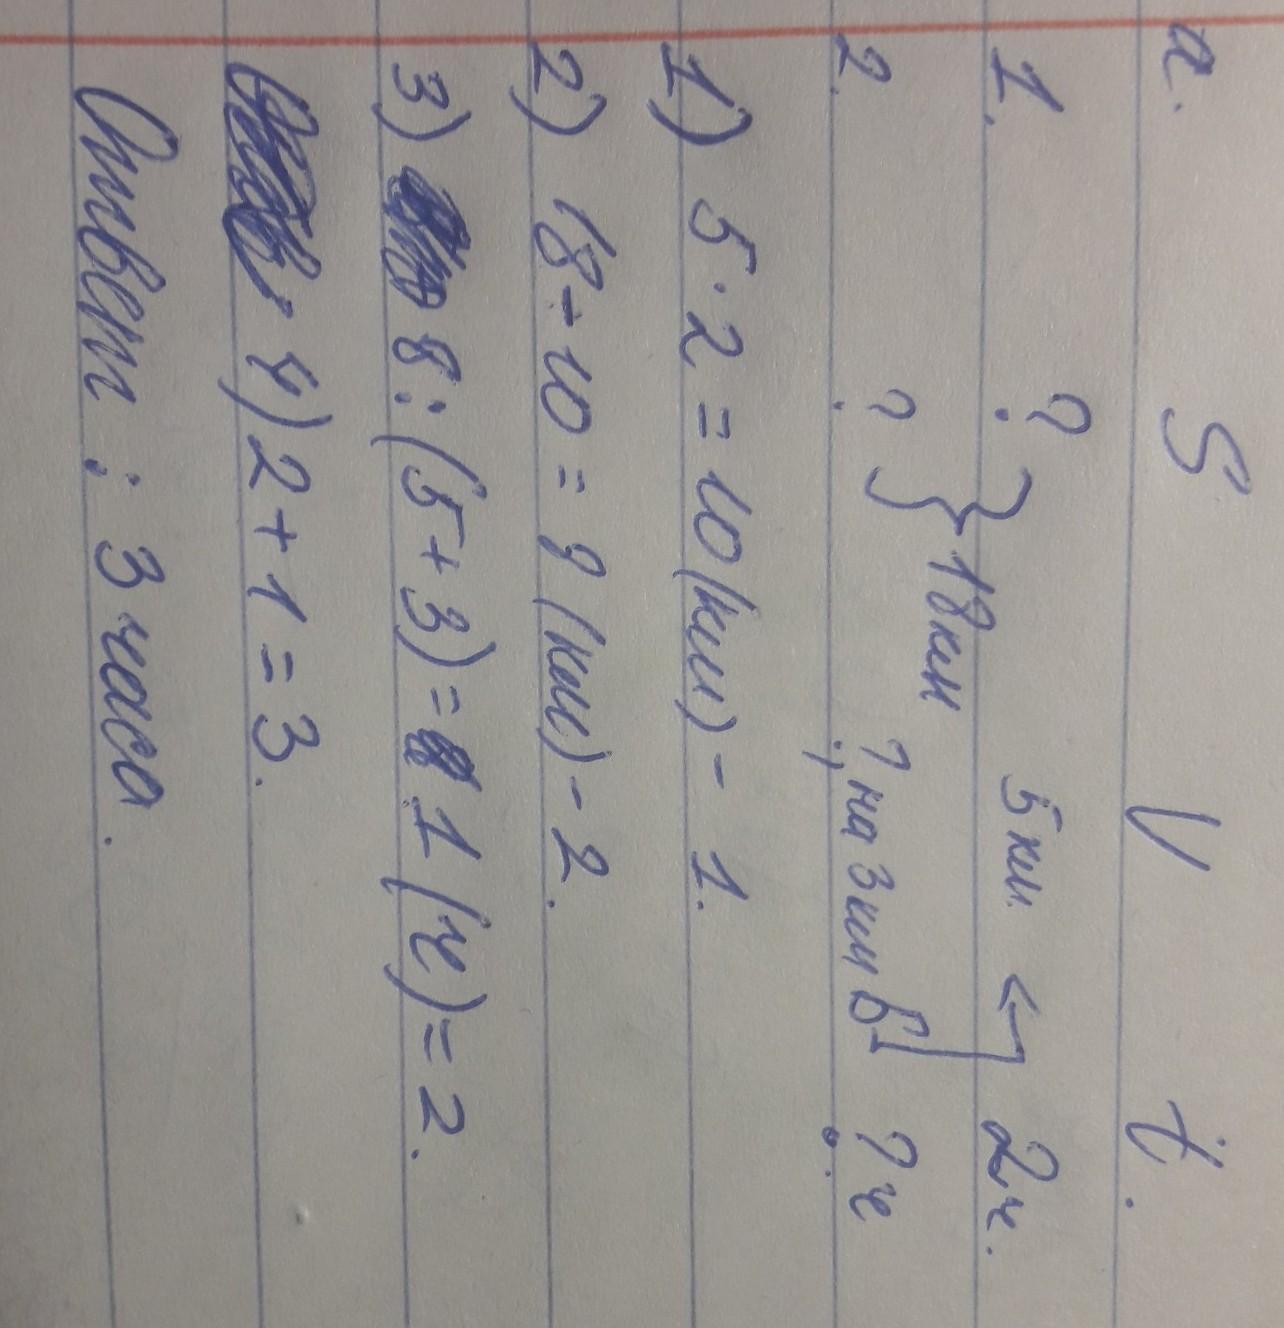 а. S V t.
1. ? } 18 км 5 км. ← 2 ч.
2. ? ?, на 3 км б ? ч
1) 5 · 2 = 10 (км) - 1.
2) 18 - 10 = 8 (км) - 2.
3) 8 : (5 + 3) = 1 (ч) = 2.
4) 2 + 1 = 3.
Ответ : 3 часа.